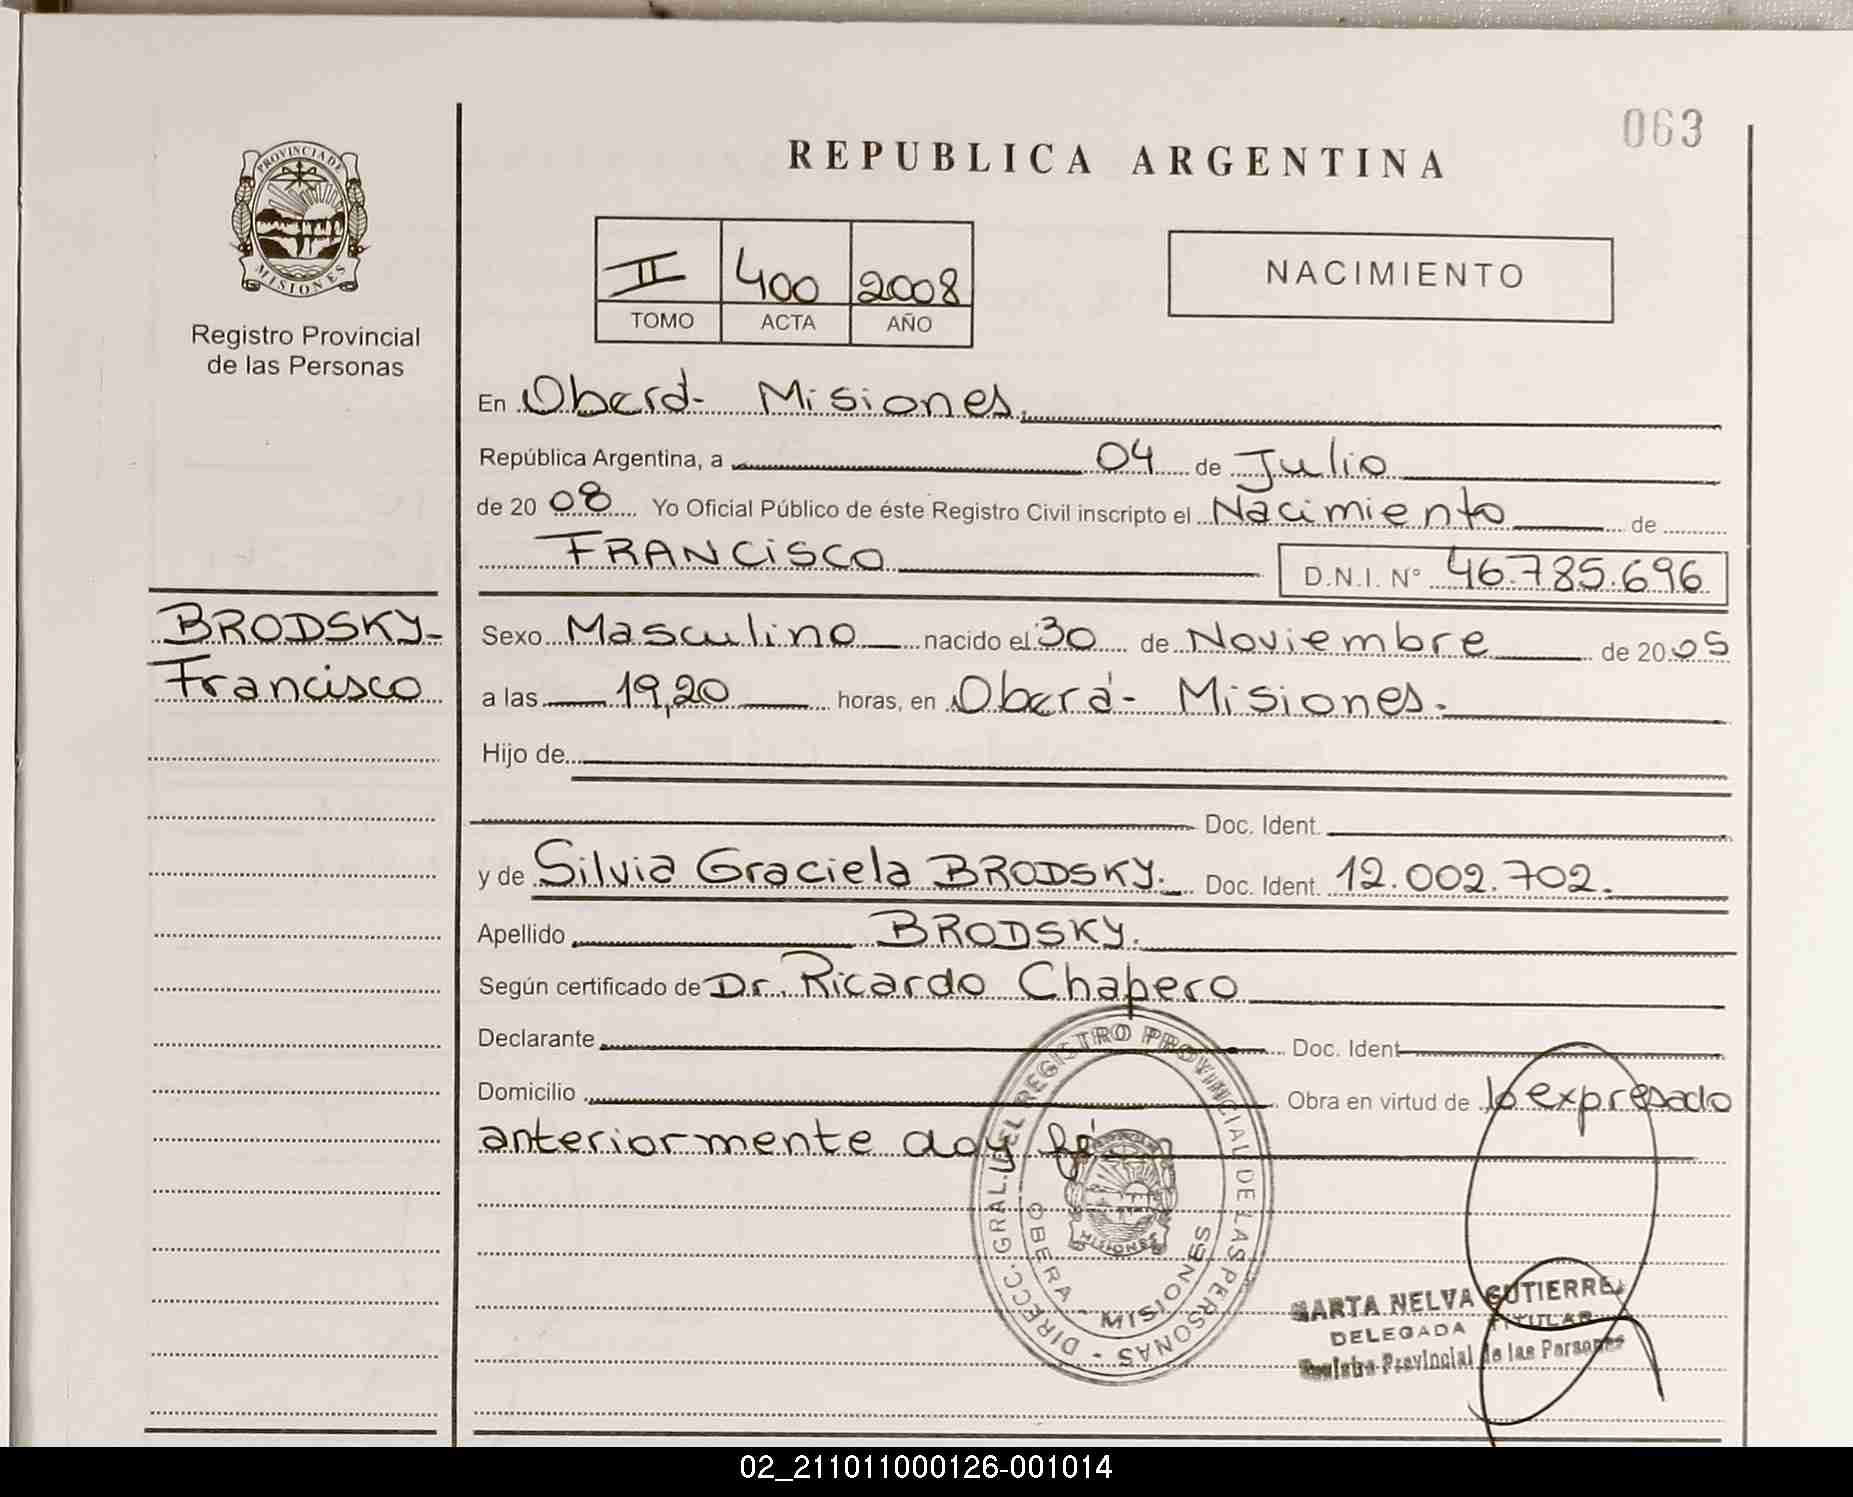 063
REPUBLICA ARGENTINA
PROVINCIA DE
MISIONES
Registro Provincial
de las Personas
II 400 2008
TOMO ACTA AÑO
NACIMIENTO
En Oberá- Misiones.
República Argentina, a 04 de Julio
de 2008 Yo Oficial Público de éste Registro Civil inscripto el Nacimiento de
FRANCISCO D.N.I. Nº 46.785.696
BRODSKY
Francisco
Sexo Masculino nacido el 30 de Noviembre de 2005
a las 19,20 horas, en Oberá- Misiones.
Hijo de
Doc. Ident.
y de Silvia Graciela BRODSKY. Doc. Ident. 12.002.702.
Apellido BRODSKY.
Según certificado de Dr. Ricardo Chapero
Declarante Doc. Ident
Domicilio Obra en virtud de lo expresado
anteriormente doy fé
DIREC. GRAL. DEL REGISTRO PROVINCIAL DE LAS PERSONAS -
OBERA - MISIONES
MISIONES
MARTA NELVA GUTIERREZ
DELEGADA TITULAR
Registro Provincial de las Personas
02_211011000126-001014